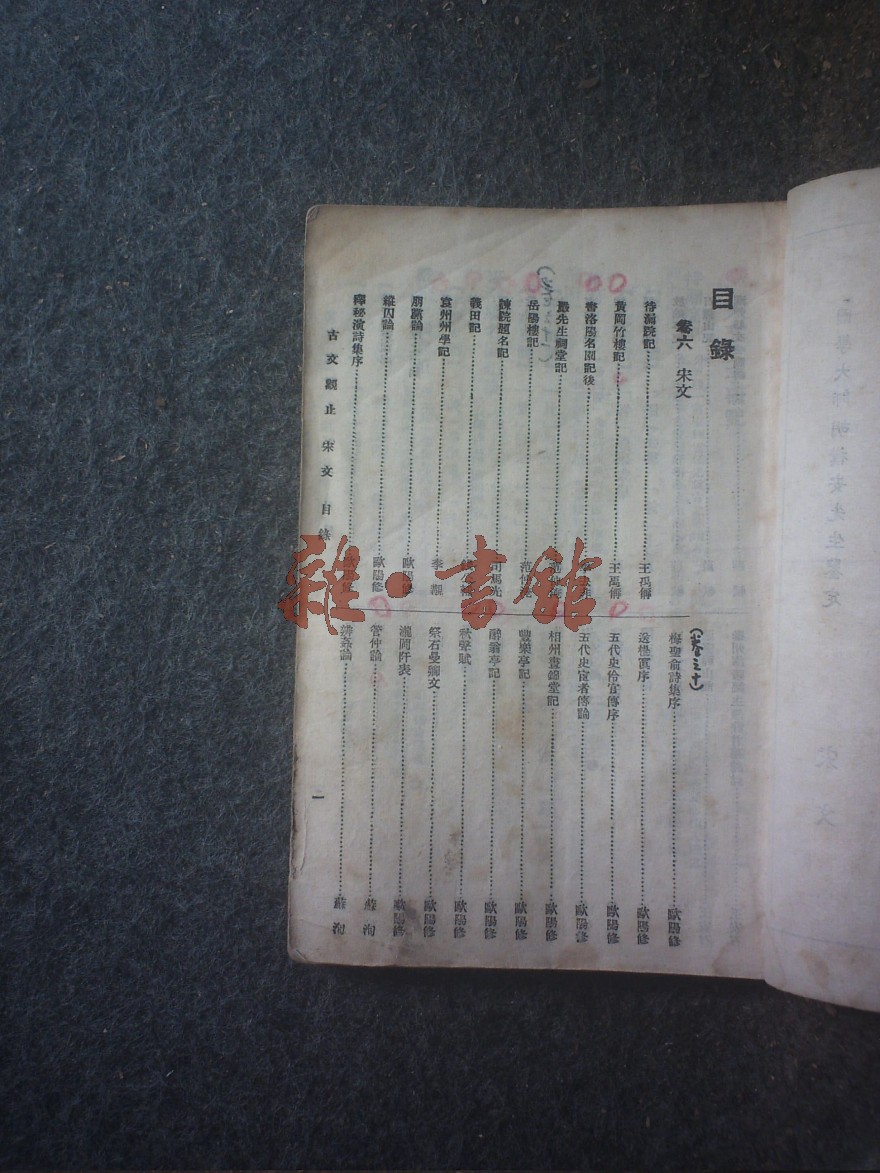 目錄
卷六 宋文
待漏院記 王禹偁
黃岡竹樓記 王禹偁
書洛陽名園記後
嚴先生祠堂記
岳陽樓記 范仲淹
諫院題名記 司馬光
義田記
袁州州學記 李覯
朋黨論 歐陽修
縱囚論 歐陽修
釋秘演詩集序
(卷之十)
梅聖俞詩集序 歐陽修
送楊寘序 歐陽修
五代史伶官傳序 歐陽修
五代史宦者傳論 歐陽修
相州晝錦堂記 歐陽修
豐樂亭記 歐陽修
醉翁亭記 歐陽修
秋聲賦 歐陽修
祭石曼卿文 歐陽修
瀧岡阡表 歐陽修
管仲論 蘇洵
辨姦論 蘇洵
古文觀止 宋文 目錄
一
雜·書館